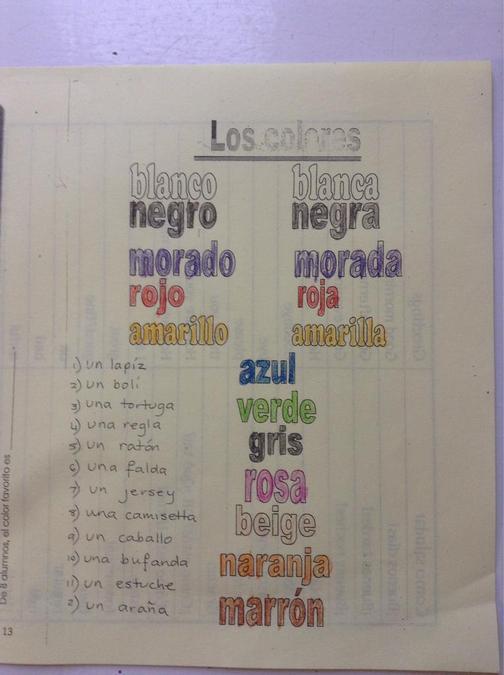 Los colores
blanco blanca
negro negra
morado morada
rojo roja
amarillo amarilla
azul
verde
gris
rosa
beige
naranja
marrón
1) un lapíz
2) un bolí
3) una tortuga
4) una regla
5) un ratón
6) una falda
7) un jersey
8) una camisetta
9) un caballo
10) una bufanda
11) un estuche
2) un araña
De 8 alumnos, el color favorito es
13